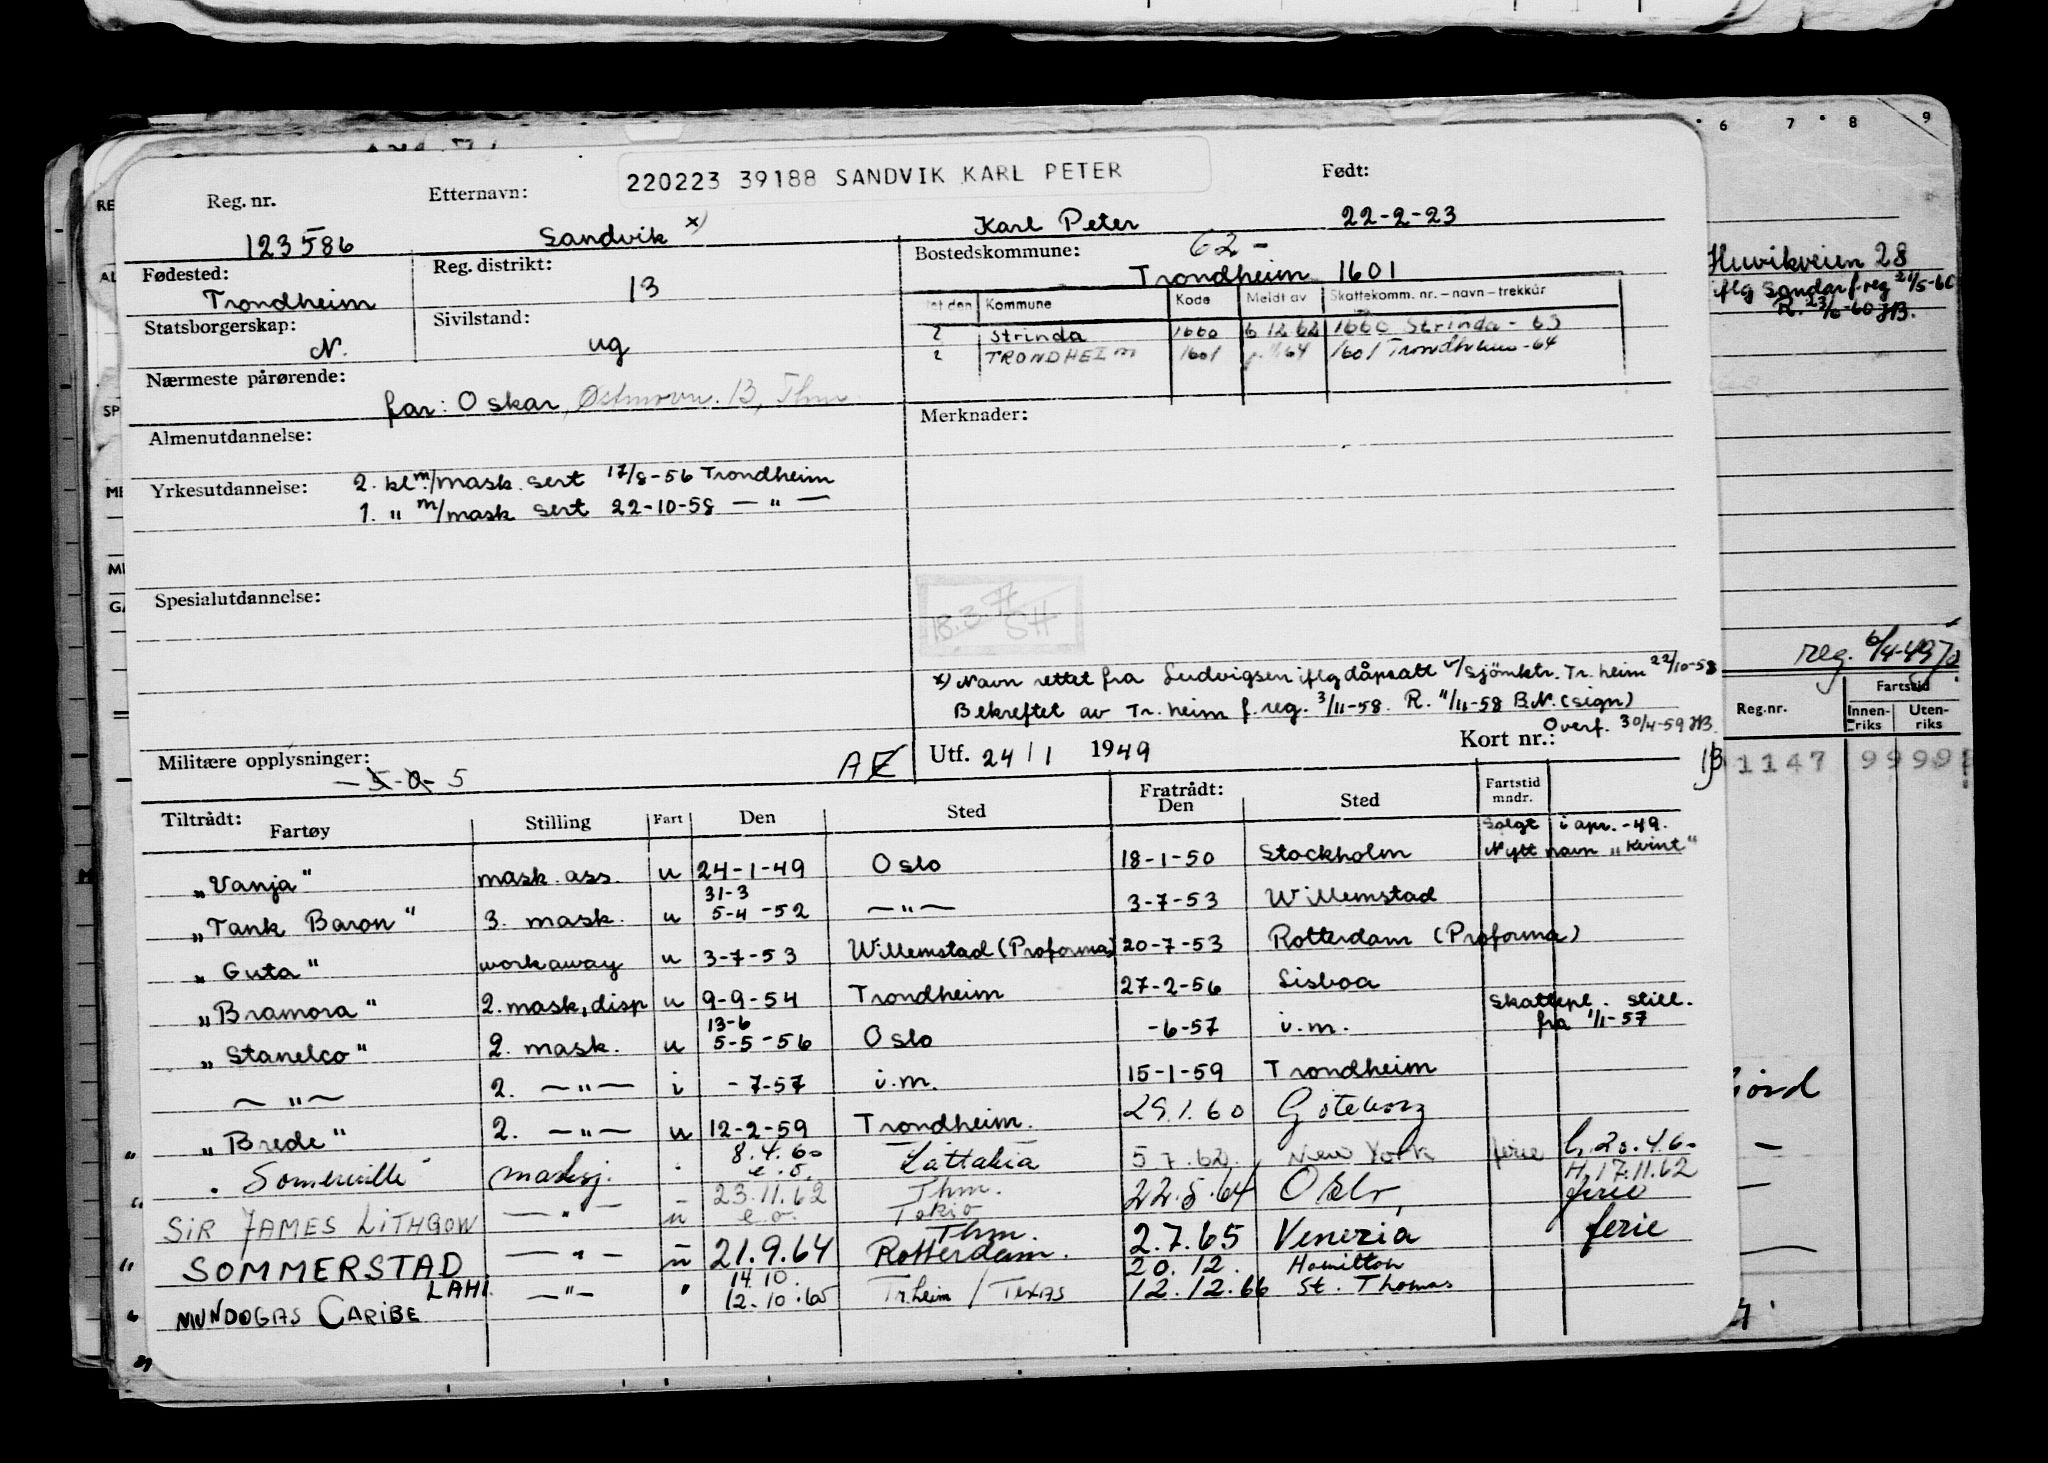 6 7 8 9
220223 39188 SANDVIK KARL PETER
Reg. nr. Etternavn: Født:
123586 Sandvik x) Karl Peter 22-2-23
Fødested: Reg. distrikt: Bostedskommune: 62-
Trondheim 13 Trondheim 1601
Kommune Kode Meldt av Skattekomm. nr. – navn – trekkår
Statsborgerskap: Sivilstand:
N. ug
Strinda 1660 6 12 62 1660 Strinda - 63
TRONDHEIM 1601 64 1601 Trondheim -64
Nærmeste pårørende:
far: Oskar, Østmovn. 13, Thm
Almenutdannelse: Merknader:
Yrkesutdannelse: 2. kl m/mask. sert 17/8-56 Trondheim
1. " m/mask sert 22-10-58 — " —
Spesialutdannelse:
x) Navn rettet fra Ludvigsen iflg dåpsatt v/Sjömktr. Tr.heim 22/10-58
Bekreftet av Tr.heim f.reg. 3/11-58. R. 11/11-58 B.N. (sign)
Overf. 30/4-59 JB.
Militære opplysninger: AE Utf. 24/1 1949 Kort nr.:
-5-0- 5
Tiltrådt: Fartøy Stilling Fart Den Sted Fratrådt: Den Sted Fartstid mndr.
Solgt i apr. -49.
"Vanja" mask. ass. u 24-1-49 Oslo 18-1-50 Stockholm Nytt navn "Kvint"
31-3
"Tank Baron" 3. mask. u 5-4-52 —"— 3-7-53 Willemstad
"Guta" workaway u 3-7-53 Willemstad (Proforma) 20-7-53 Rotterdam (Proforma)
"Bramora" 2. mask, disp u 9-9-54 Trondheim 27-2-56 Lisboa
13-6 Skattepl. still.
"Stanelco" 2. mask. u 5-5-56 Oslo -6-57 i.m. fra 1/1-57
—"— 2. —"— i -7-57 i.m. 15-1-59 Trondheim
"Brede" 2. —"— u 12-2-59 Trondheim. 29.1.60 Göteborg
8.4.60
" Somerville " masksj. e.o. Lattakia 5 7.62. New York ferie h. 20.4.60
H. 17.11.62
23.11.62 Thm.
SIR JAMES LITHGOW —"— u e.o. Tokio 22.5.64 Oslo ferie
Thm.
SOMMERSTAD —"— u 21.9.64 Rotterdam. 2.7.65 Venezia ferie
LAHI 14.10 20.12. Hamilton
MUNDOGAS CARIBE —"— " 12.10.65 Tr.heim / TEXAS 12.12.66 St. Thomas
Huvikveien 28
iflg Sandar f.reg 21/5-60
R. 23/6-60 JB.
reg. 6/4-49
Fartstid
Reg.nr. Innenriks Utenriks
1147